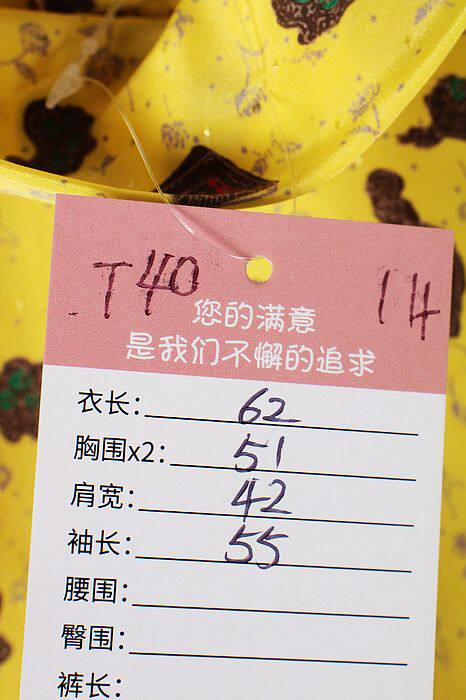 T40 14
您的满意
是我们不懈的追求
衣长: 62
胸围x2: 51
肩宽: 42
袖长: 55
腰围:
臀围:
裤长: